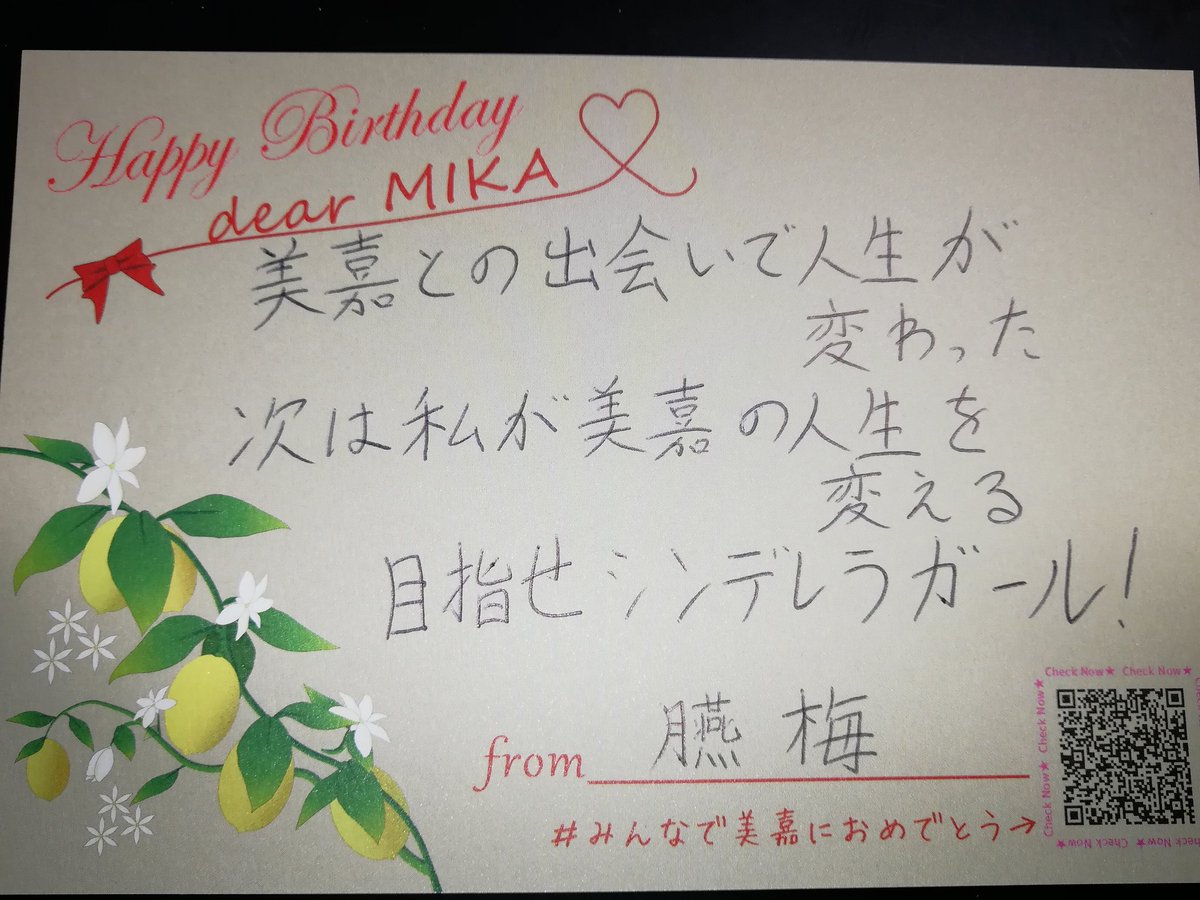 Happy Birthday
dear MIKA
美嘉との出会いで人生が
変わった
次は私が美嘉の人生を
変える
目指せシンデレラガール!
from 臙梅
#みんなで美嘉におめでとう→
Check Now★ Check Now★
Check Now★ Check Now★
Check Now★ Check Now★